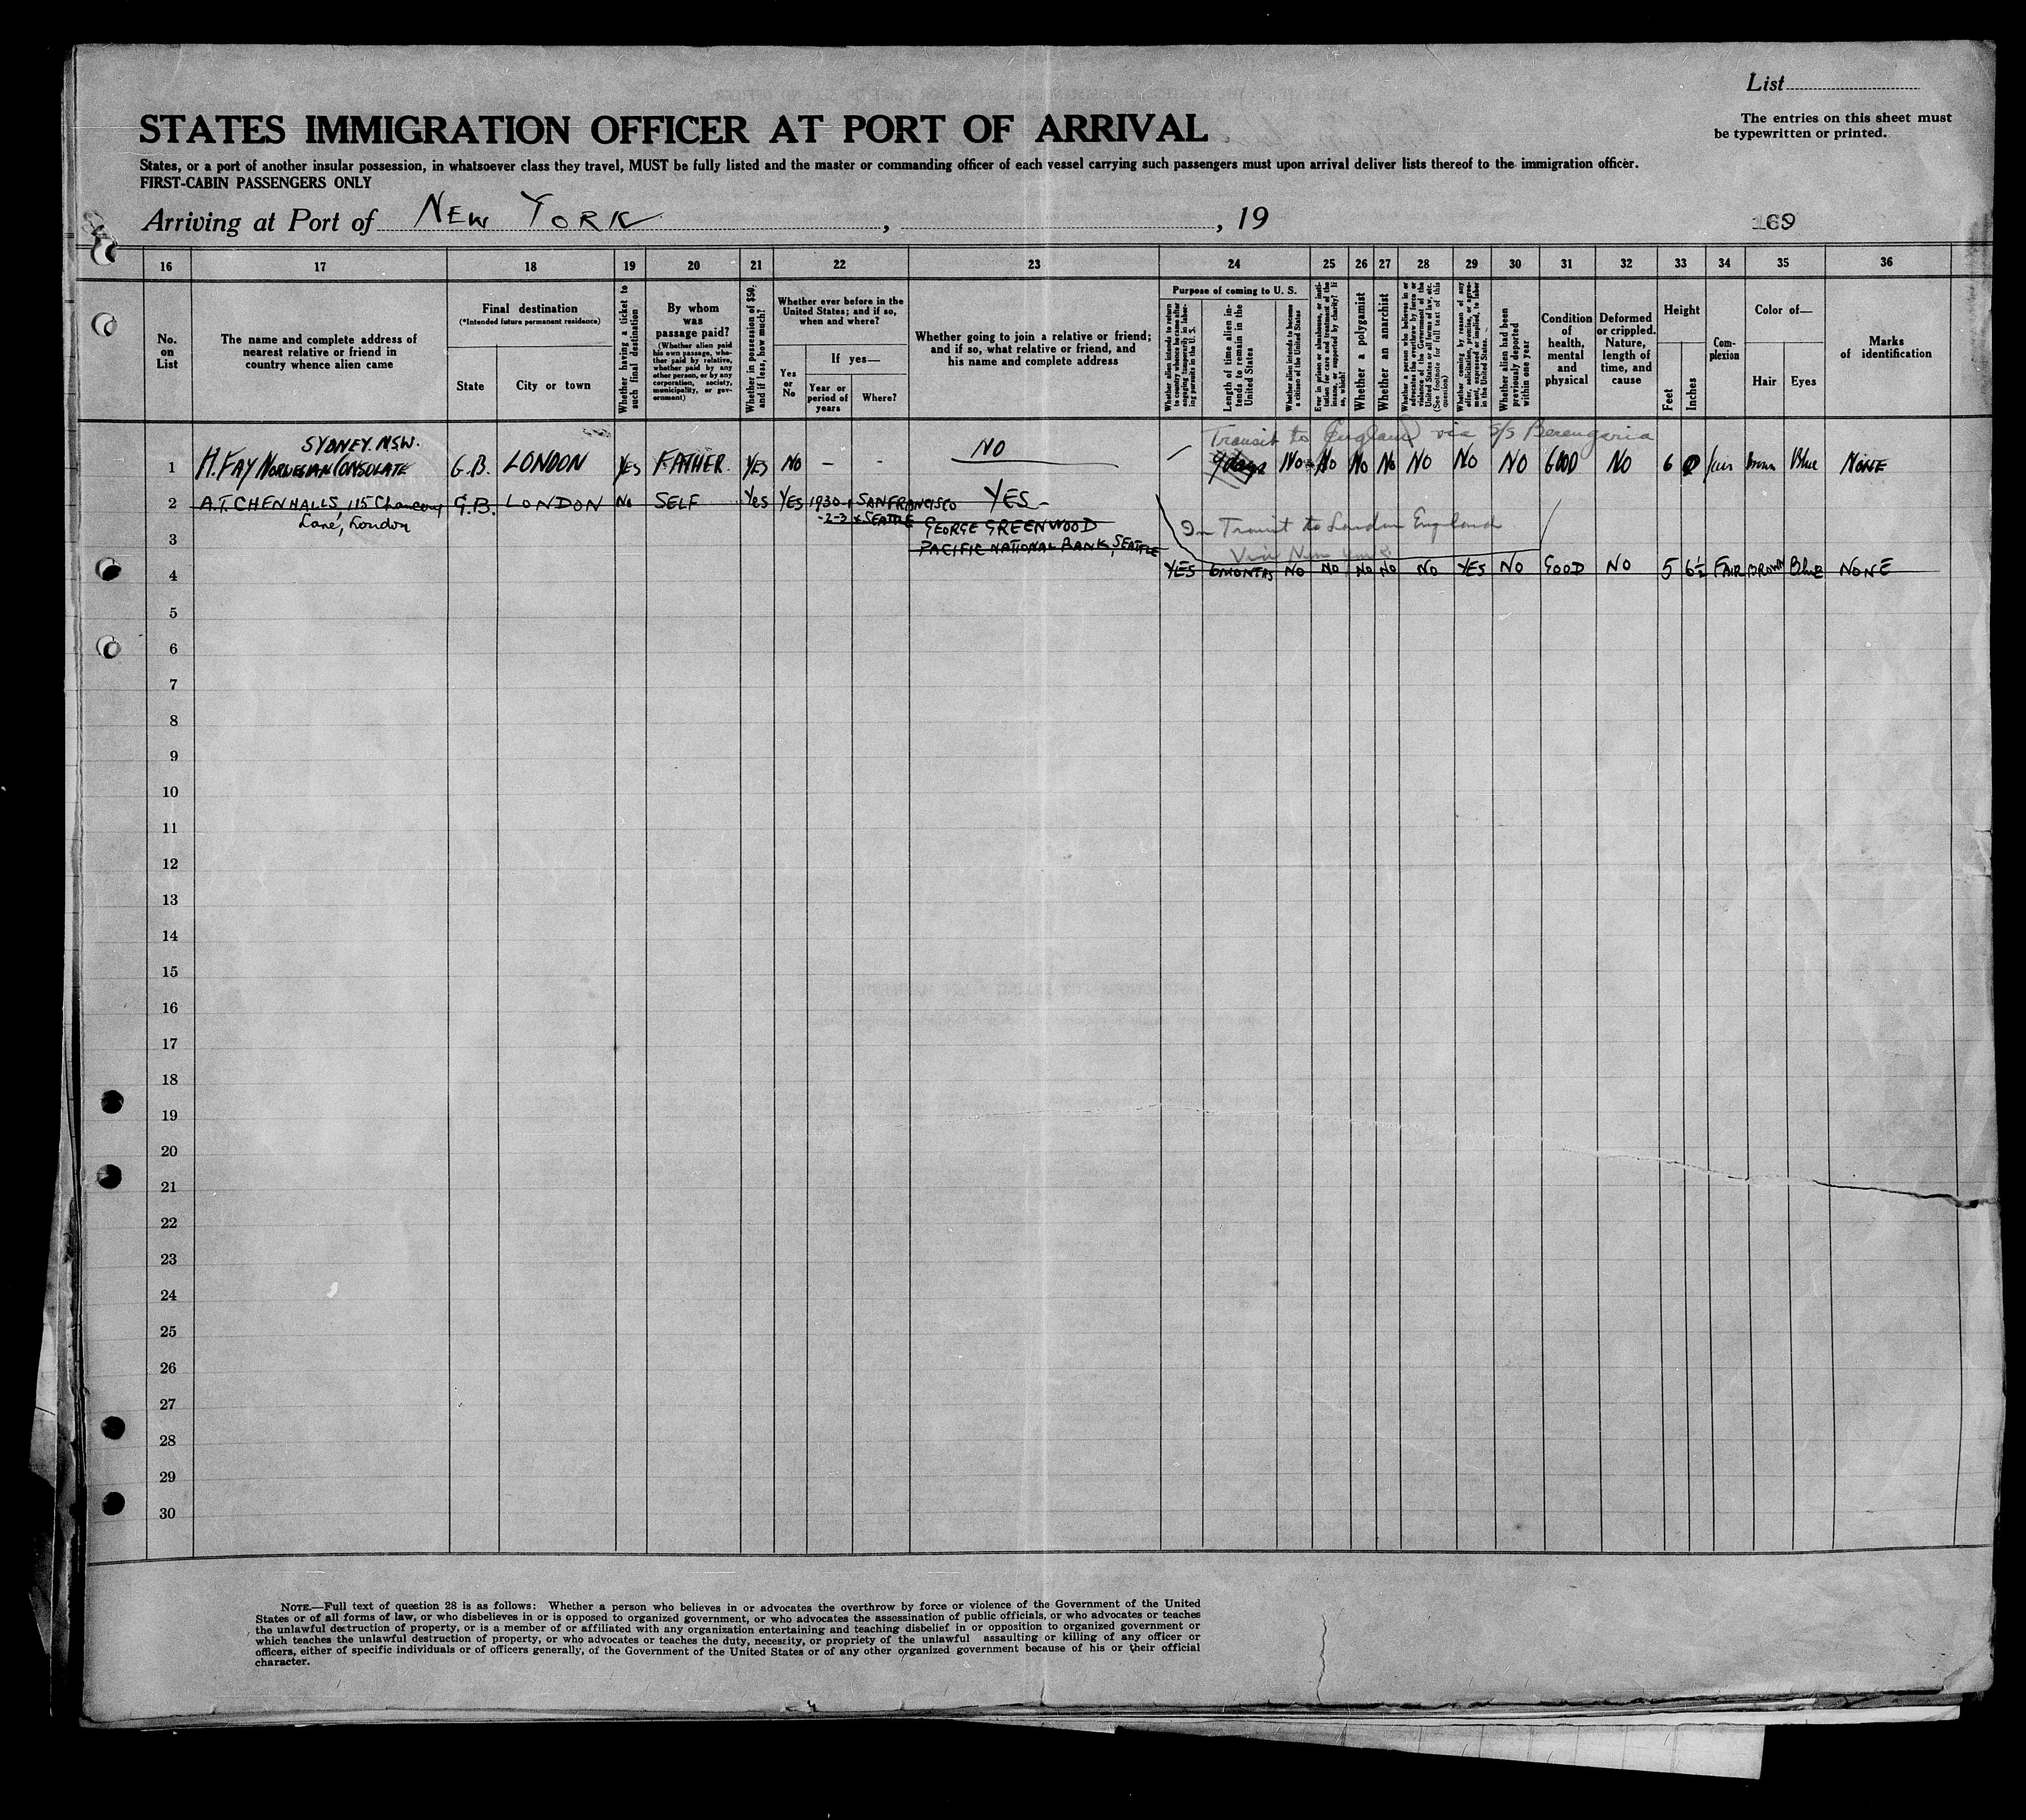 List
The entries on this sheet must
be typewritten or printed.
STATES IMMIGRATION OFFICER AT PORT OF ARRIVAL
States, or a port of another insular possession, in whatsoever class they travel, MUST be fully listed and the master or commanding officer of each vessel carrying such passengers must upon arrival deliver lists thereof to the immigration officer.
FIRST-CABIN PASSENGERS ONLY
Arriving at Port of NEW YORK , , 19
169
16 17 18 19 20 21 22 23 24 25 26 27 28 29 30 31 32 33 34 35 36
No.
on
List
The name and complete address of
nearest relative or friend in
country whence alien came
Final destination
(*Intended future permanent residence)
State
City or town
Whether having a ticket to
such final destination
By whom
was
passage paid?
(Whether alien paid
his own passage, whe-
ther paid by relative,
whether paid by any
other person, or by any
corporation, society,
municipality, or gov-
ernment)
Whether in possession of $50,
and if less, how much?
Whether ever before in the
United States; and if so,
when and where?
Yes
or
No
If yes—
Year or
period of
years
Where?
Whether going to join a relative or friend;
and if so, what relative or friend, and
his name and complete address
Purpose of coming to U. S.
Whether alien intends to return
to country whence he came after
engaging temporarily in labor-
ing pursuits in the U. S.
Length of time alien in-
tends to remain in the
United States
Whether alien intends to become
a citizen of the United States
Ever in prison or almshouse, or insti-
tution for care and treatment of the
insane, or supported by charity? If
so, which?
Whether a polygamist
Whether an anarchist
Whether a person who believes in or
advocates the overthrow by force or
violence of the Government of the
United States or all forms of law, etc.
(See footnote for full text of this
question)
Whether coming by reason of any
offer, solicitation, promise, or agree-
ment, expressed or implied, to labor
in the United States.
Whether alien had been
previously deported
within one year
Condition
of
health,
mental
and
physical
Deformed
or crippled.
Nature,
length of
time, and
cause
Height
Feet
Inches
Com-
plexion
Color of—
Hair
Eyes
Marks
of identification
SYDNEY. N.S.W.
Transit to England via S/S Berengaria
1 H. FAY NORWEGIAN CONSULATE G.B. LONDON YES FATHER YES NO — - NO days NO NO NO NO NO NO NO GOOD NO 6 0 fair Brown Blue NONE
2 A.T. CHENHALLS, 115 Chancery G.B. LONDON No SELF Yes YES 1930 SAN FRANCISCO YES -
Lane, London -2-3 & SEATTLE GEORGE GREENWOOD
In Transit to London England
3 PACIFIC NATIONAL BANK, SEATTLE
Via New York
4 YES 6 MONTHS NO NO NO NO NO YES NO GOOD NO 5 6½ FAIR BROWN Blue NONE
5
6
7
8
9
10
11
12
13
14
15
16
17
18
19
20
21
22
23
24
25
26
27
28
29
30
NOTE.—Full text of question 28 is as follows: Whether a person who believes in or advocates the overthrow by force or violence of the Government of the United
States or of all forms of law, or who disbelieves in or is opposed to organized government, or who advocates the assassination of public officials, or who advocates or teaches
the unlawful destruction of property, or is a member of or affiliated with any organization entertaining and teaching disbelief in or opposition to organized government or
which teaches the unlawful destruction of property, or who advocates or teaches the duty, necessity, or propriety of the unlawful assaulting or killing of any officer or
officers, either of specific individuals or of officers generally, of the Government of the United States or of any other organized government because of his or their official
character.